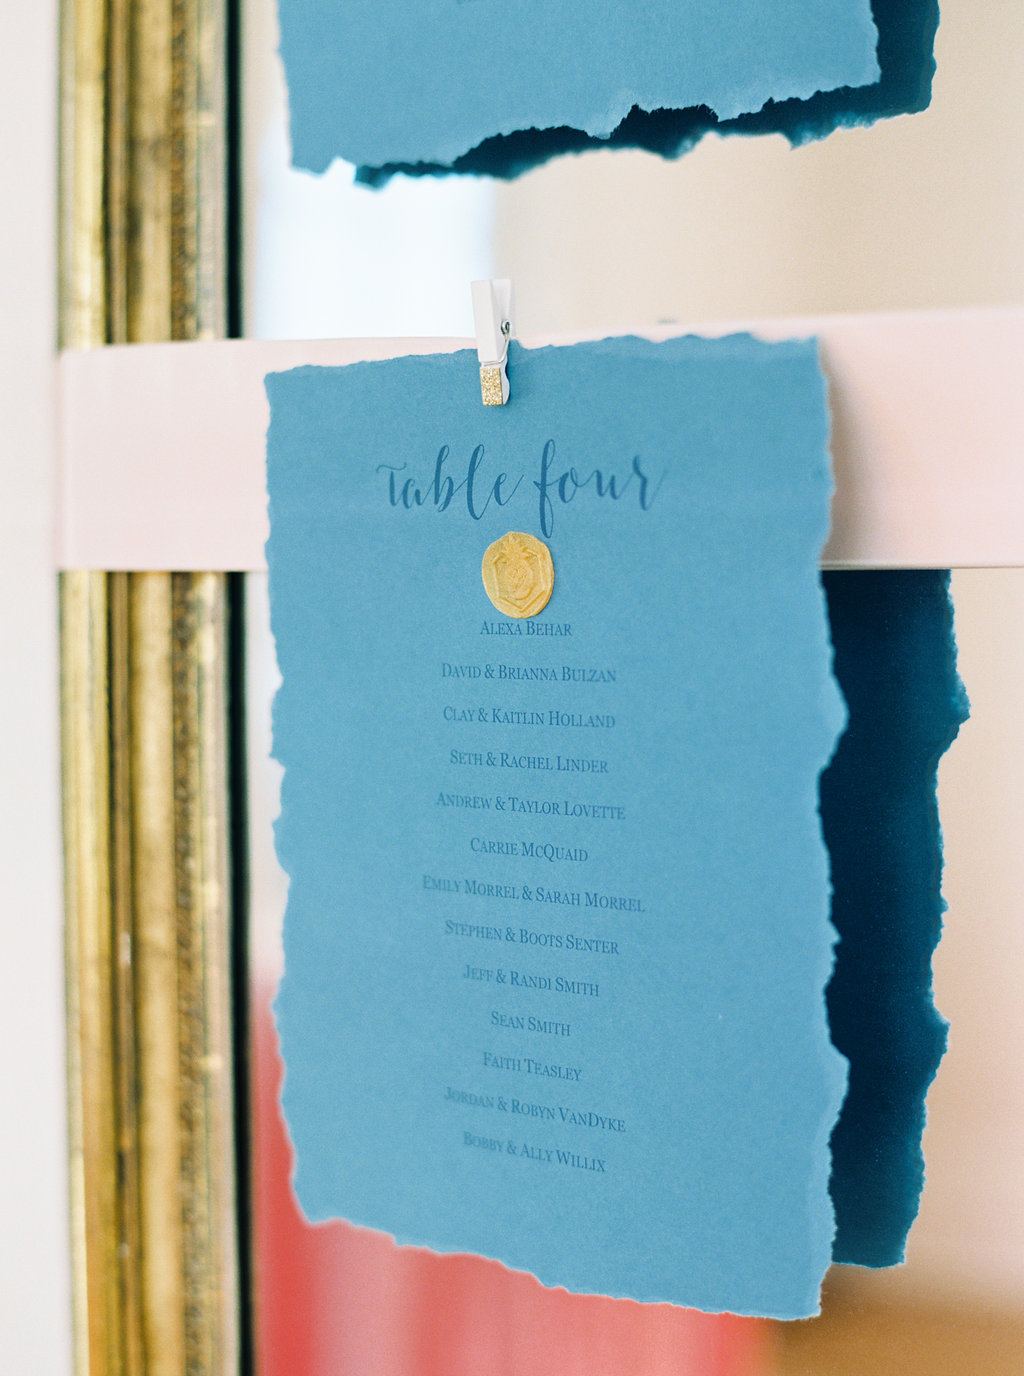 table four
Alexa Behar
David & Brianna Bulzan
Clay & Kaitlin Holland
Seth & Rachel Linder
Andrew & Taylor Lovette
Carrie McQuaid
Emily Morrel & Sarah Morrel
Stephen & Boots Senter
Jeff & Randi Smith
Sean Smith
Faith Teasley
Jordan & Robyn VanDyke
Bobby & Ally Willix